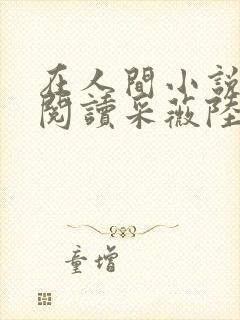 在人間小說
閱讀采薇陸
童增